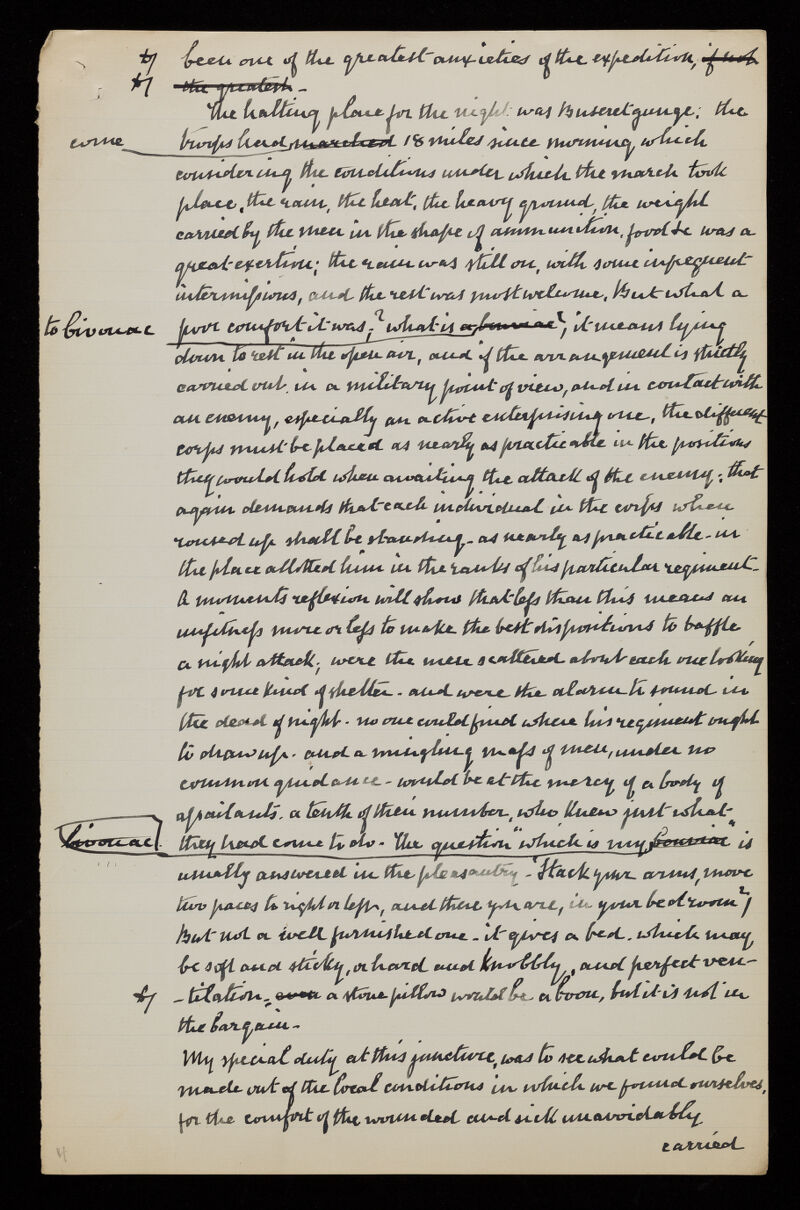 been one of the greatest anxieties of the expedition, if not
the greatest -
The halting place for the night was Buseretgunge; the
come
troops had marched 18 miles since morning which
considering the conditions under which the march took
place, the rain, the heat, the heavy ground, the weight
carried by the men in the shape of ammunition, food &c was a
great exertion; the rain was still on, with some infrequent
intermissions, and the rest was most welcome. But what a
to bivouac
poor comfort it was; "what is a bouviac", it means lying
down to rest in the open air, and if the arrangement is strictly
carried out. in a military point of view, and in contact with
an enemy, especially an active enterprising one, the different
corps must be placed as nearly as practicable in the positions
they would hold when awaiting the attack of the enemy; that
again demands that each individual in the corps when
roused up shall be standing - as nearly as practicable - in
the place allotted him in the ranks of his particular regiment -
A moments reflexion will show that less than this means an
unfitness more or less to make the best dispositions to baffle
a night attack; were the men scattered about each one looking
for some kind of shelter - and were the alarm to sound in
the dead of night - no one could find where his regiment ought
to draw up - and a mingling mass of men, under no
common guidance - would be at the mercy of a body of
assailants. a tenth of their number, who knew just what
bivouac
they had come to do - The question "which is my bouviac" is
usually answered in the pleasantry - "Stack your arms, move
two paces to right or left, and there you are, in your bedroom"
But not a well furnished one - it gives a bed. which may
be soft and sticky, or hard and knobbly, and perfect ven-
-tilation, even a stone pillow would be a boon, but it is not in
the bargain -
My special duty at this juncture, was to see what could be
made out of the local conditions in which we found ourselves,
for the comfort of the wounded and sick unavoidably
carried